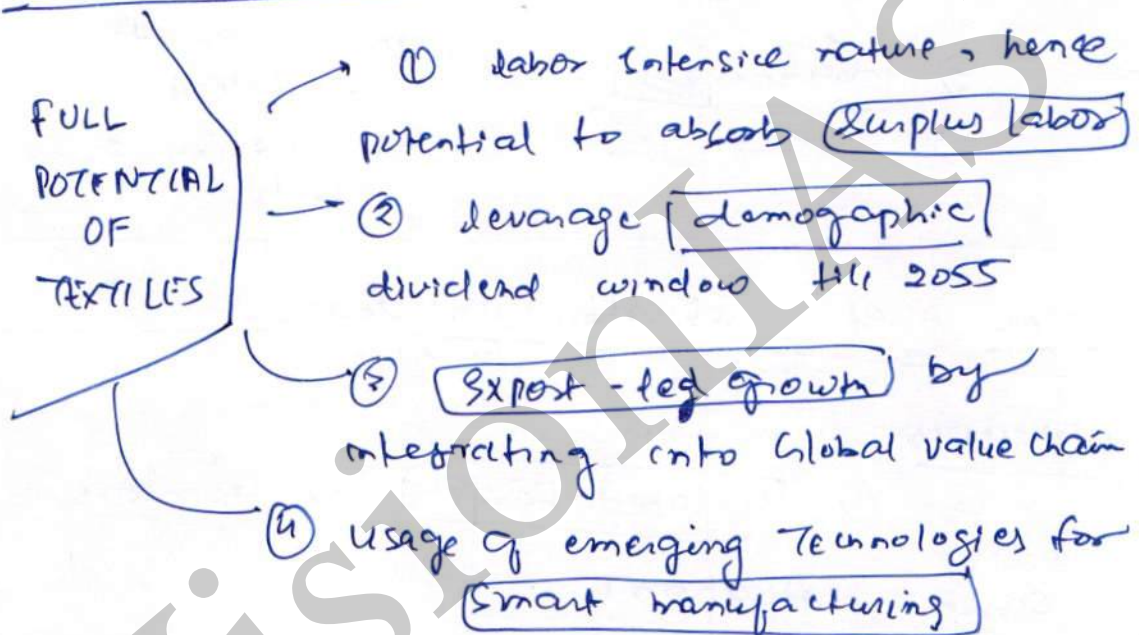 FULL
POTENTIAL
OF
TEXTILES
① labor intensice nature, hence
potential to absorb surplus labor
② levarage demographic
dividend window till 2055
③ Export-led growth by
integrating into Global value chain
④ usage of emerging Technologies for
smart manufacturing
VisionIAS